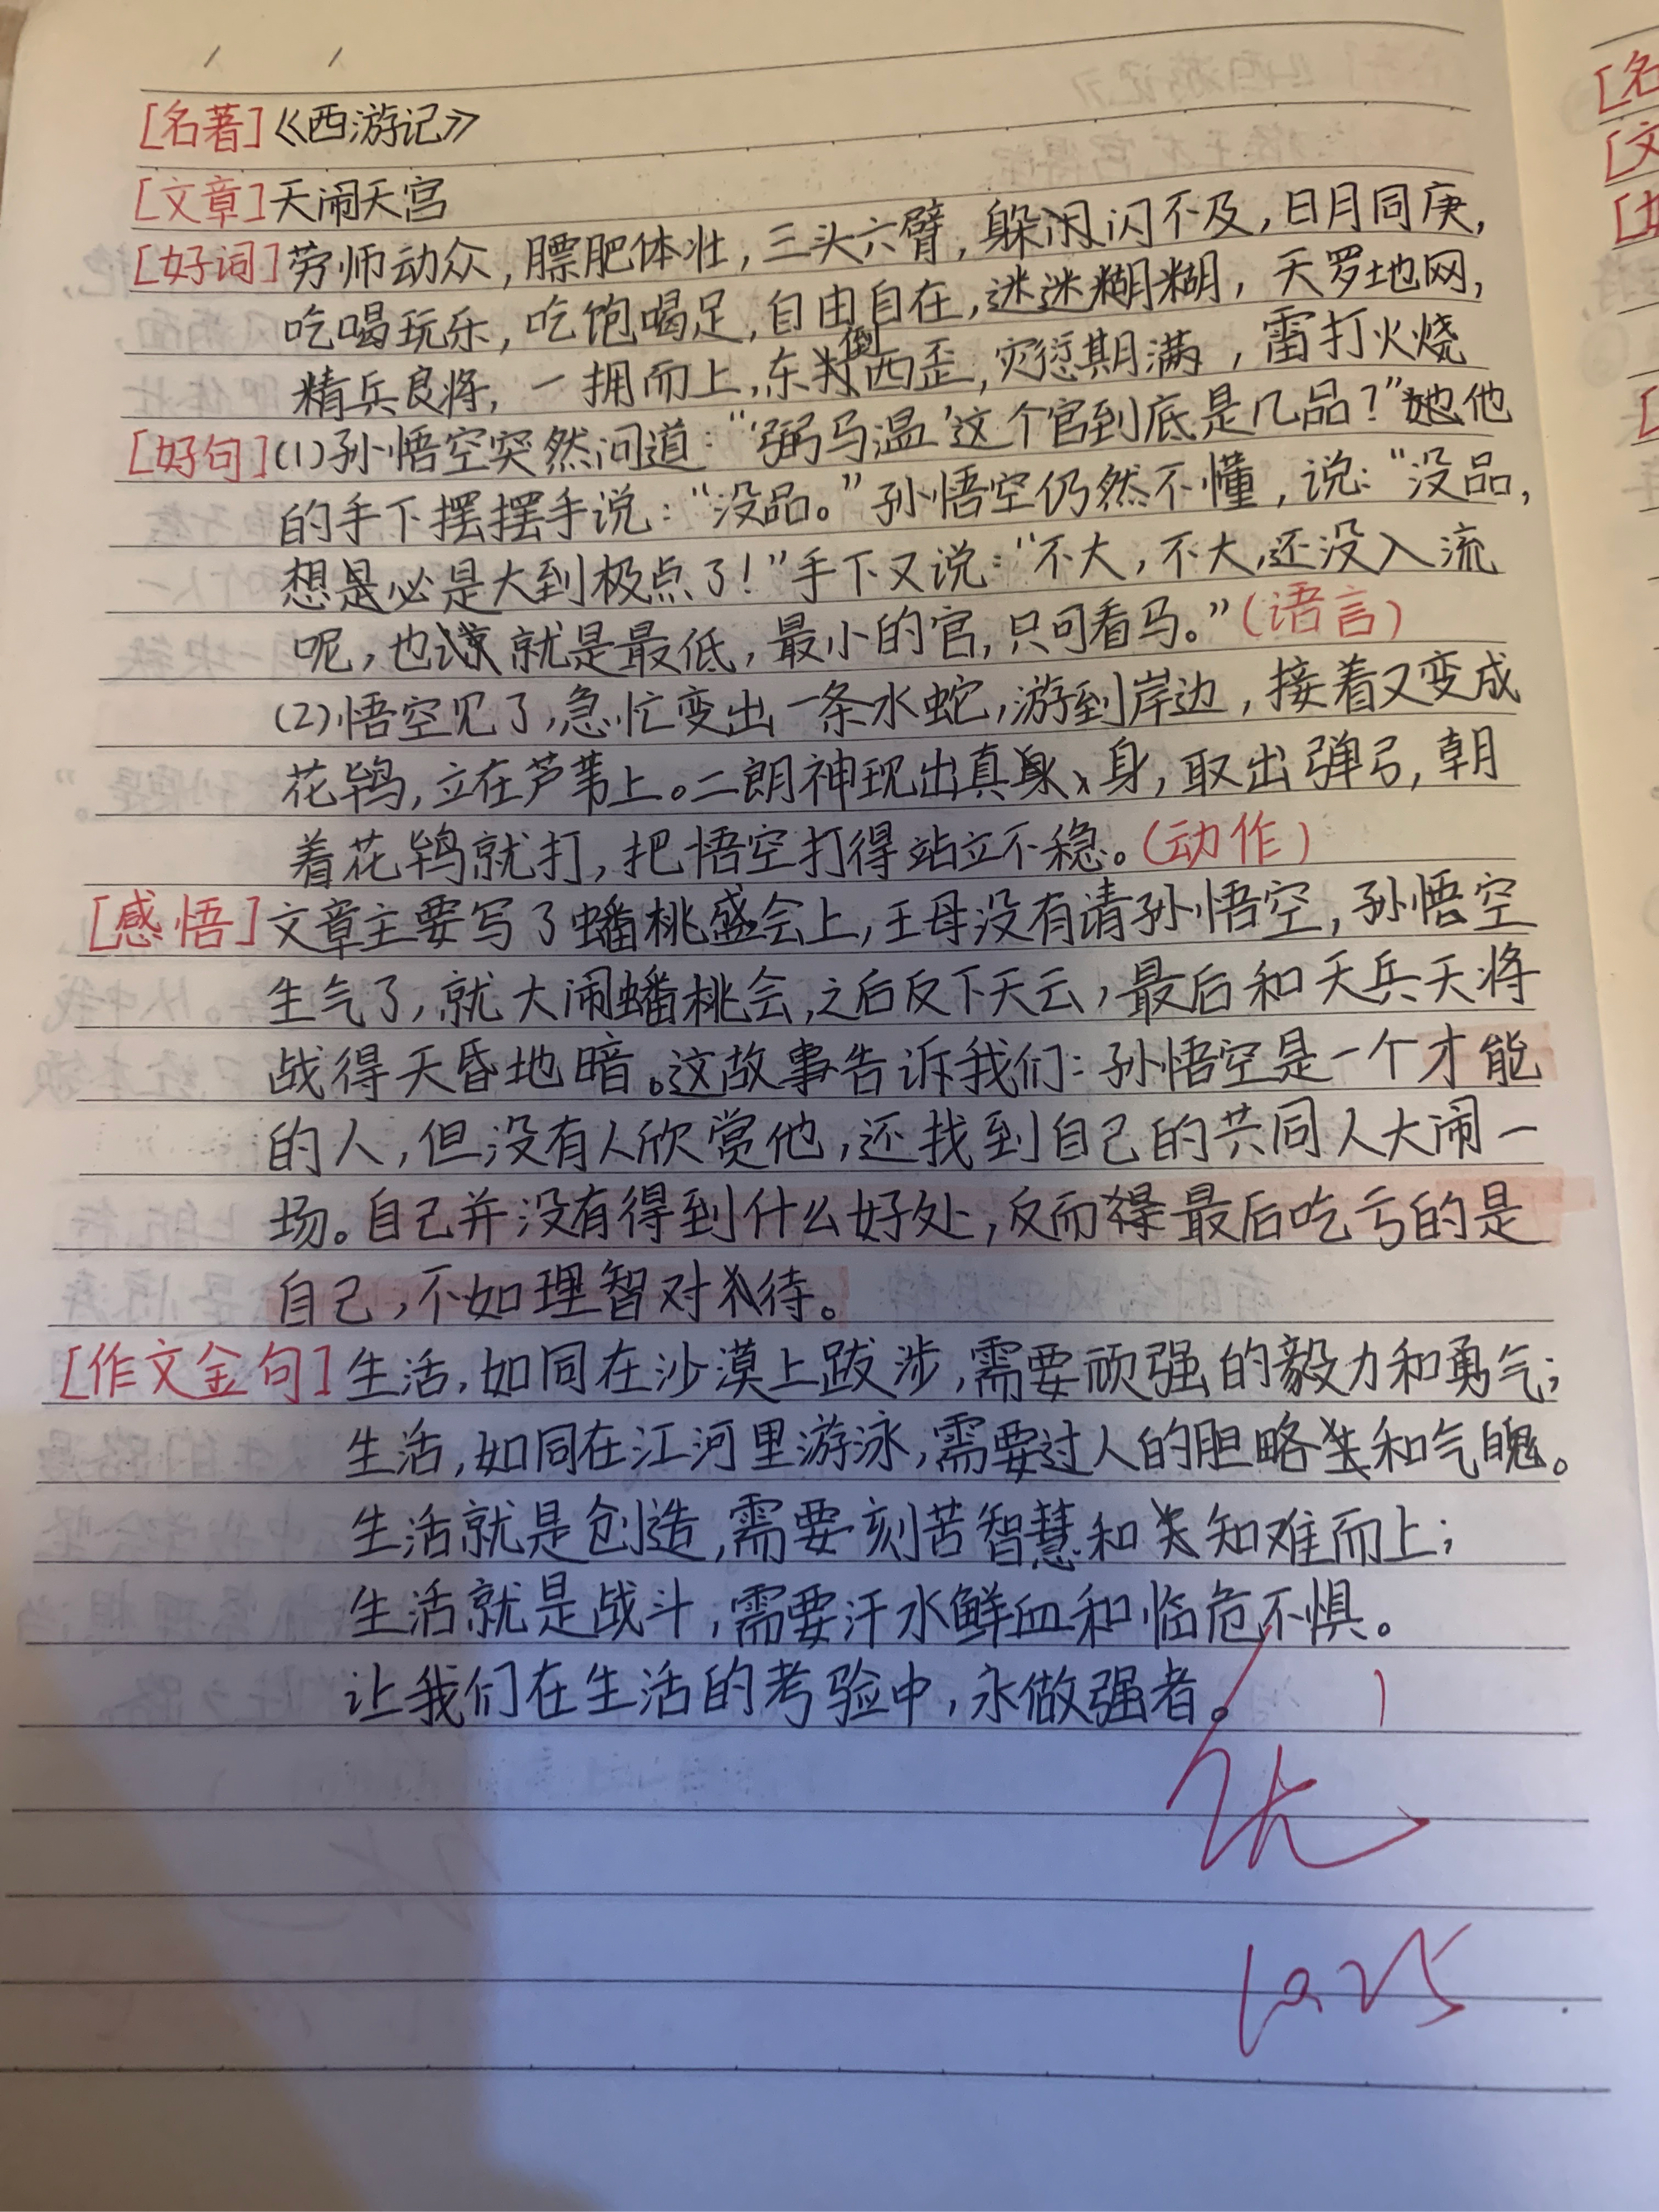 [名著]《西游记》
[文章]天闹天宫
[好词]劳师动众,膘肥体壮,三头六臂,躲闪不及,日月同庚,
吃喝玩乐,吃饱喝足,自由自在,迷迷糊糊,天罗地网,
精兵良将,一拥而上,东倒西歪,灾愆期满,雷打火烧
[好句](1)孙悟空突然问道:“‘弼马温’这个官到底是几品?”他
的手下摆摆手说:“没品。”孙悟空仍然不懂,说:“没品,
想是必是大到极点了!”手下又说:“不大,不大,还没入流
呢,也就是最低,最小的官,只可看马。”(语言)
(2)悟空见了,急忙变出一条水蛇,游到岸边,接着又变成
花鸨,立在芦苇上。二郎神现出真身,取出弹弓,朝
着花鸨就打,把悟空打得站立不稳。(动作)
[感悟]文章主要写了蟠桃盛会上,王母没有请孙悟空,孙悟空
生气了,就大闹蟠桃会,之后反下天云,最后和天兵天将
战得天昏地暗。这故事告诉我们:孙悟空是一个才能
的人,但没有人欣赏他,还找到自己的共同人大闹一
场。自己并没有得到什么好处,反而最后吃亏的是
自己,不如理智对待。
[作文金句]生活,如同在沙漠上跋涉,需要顽强的毅力和勇气;
生活,如同在江河里游泳,需要过人的胆略和气魄。
生活就是创造,需要刻苦智慧和知难而上;
生活就是战斗,需要汗水鲜血和临危不惧。
让我们在生活的考验中,永做强者。
10.25